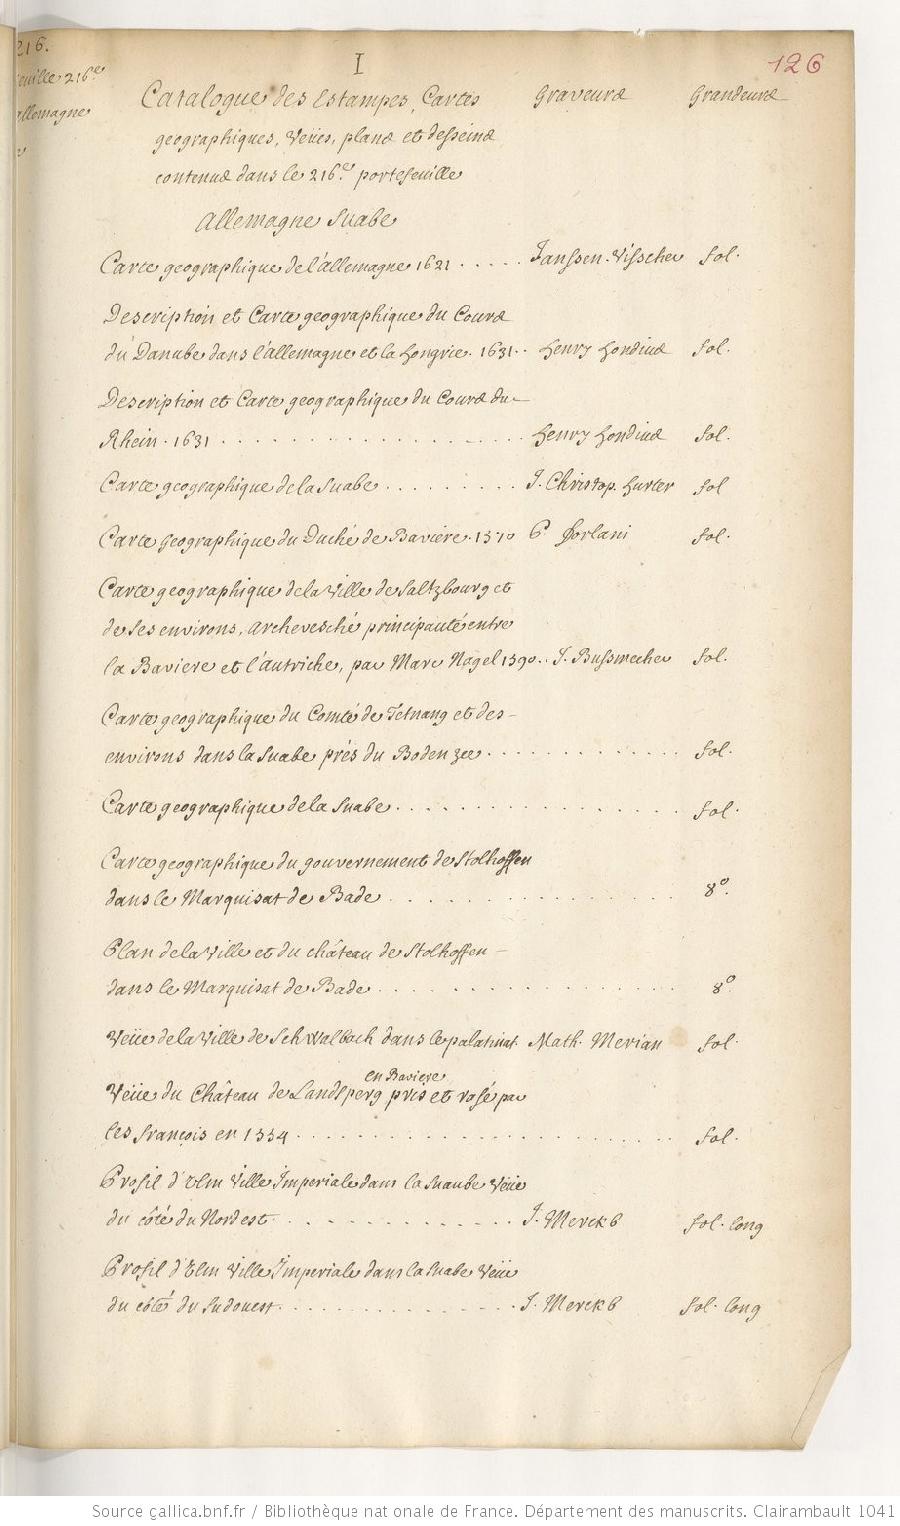 216.
euille 216e
allemagne
I
126
Catalogue des Estampes, Cartes Graveurs Grandeurs
geographiques, Veües, plans et desseins
contenus dans le 216.e portefeuille
Allemagne Suabe
Carte geographique de l'allemagne 1621 ..... Janssen. Visscher fol.
Description et Carte geographique du Cours
du Danube dans l'allemagne et la hongrie. 1631.. henry hondius fol.
Description et Carte geographique du Cours du-
Rhein. 1631 .................. henry hondius fol.
Carte geographique de la Suabe ......... J. Christop. hurter fol
Carte geographique du Duché de Baviere. 1570 P forlani fol.
Carte geographique de la ville de Saltzbourg et
de ses environs, archevesché principauté entre
la Baviere et l'autriche, par Marc Nagel 1590.. J. Bussmecher fol.
Carte geographique du Comté de Tetnang et des-
environs dans la Suabe prés du Boden zee ............. fol.
Carte geographique de la Suabe ................ fol.
Carte geographique du gouvernement de Stolhoffen
dans le Marquisat de Bade ................ 8o.
Plan de la ville et du château de Stolhoffen-
dans le Marquisat de Bade ................ 8o.
Veüe de la ville de Schwalbach dans le palatinat. Math. Merian fol.
en Baviere
Veüe du Château de Landsperg pris et rasé par
les françois en 1554 ..................... fol.
Profil d'Ulm ville Imperiale dans la Suaube Veüe
du côté du Nordest .............. J. Merckb fol. long
Profil d'Ulm ville Imperiale dans la Suabe Veüe
du côté du Sudouest ............... J. Merckb fol. long
Source gallica.bnf.fr / Bibliothèque nationale de France. Département des manuscrits. Clairambault 1041